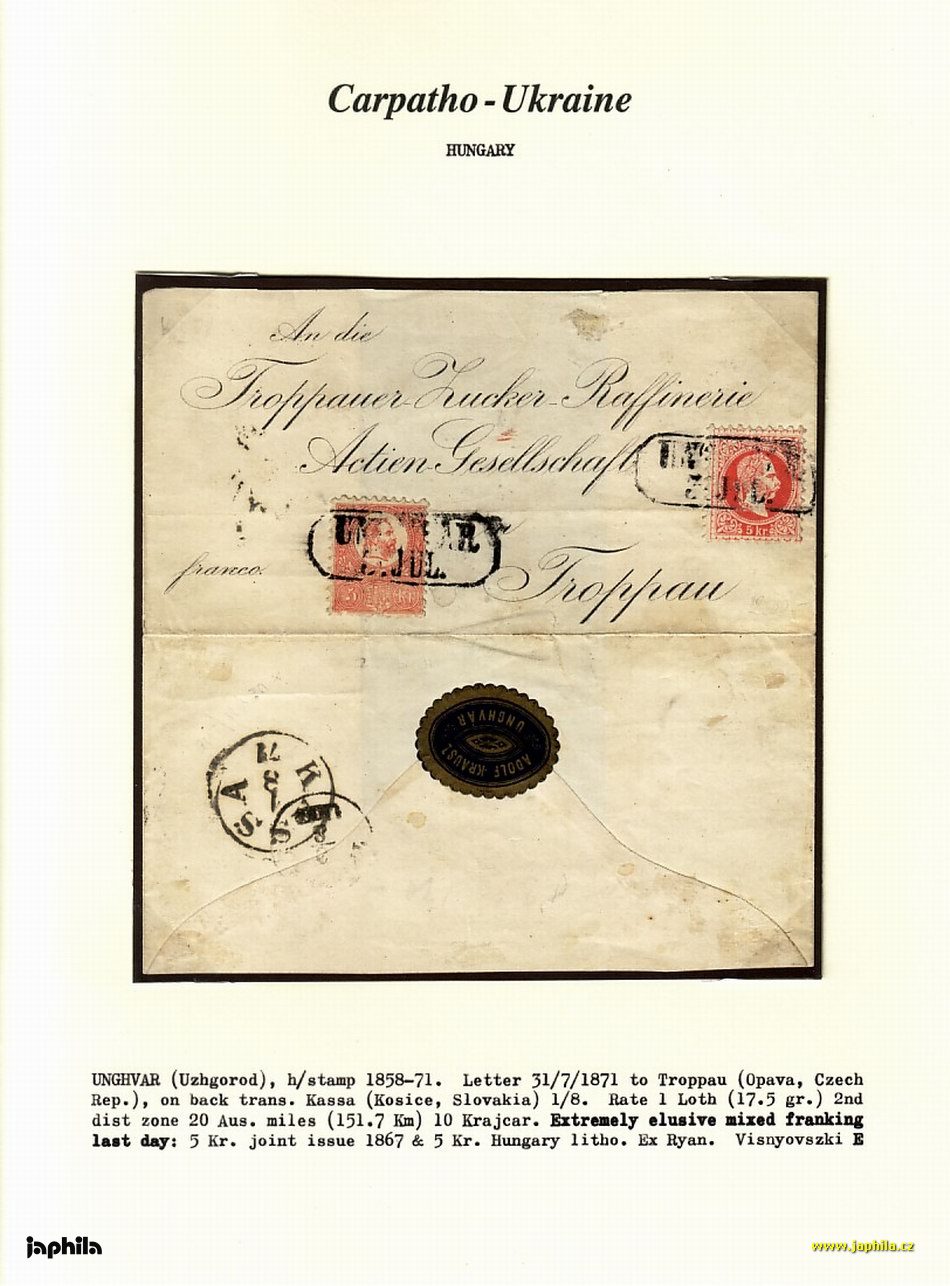 Carpatho - Ukraine
HUNGARY
An die
Troppauer-Zucker-Raffinerie
Actien-Gesellschaft
UN
JUL.
5 kr.
UN AR
JUL.
5 KR
franco.
Troppau
ADOLF KRAUSZ
UNGHVÁR
KASSA
71
UNGHVAR (Uzhgorod), h/stamp 1858-71. Letter 31/7/1871 to Troppau (Opava, Czech
Rep.), on back trans. Kassa (Kosice, Slovakia) 1/8. Rate 1 Loth (17.5 gr.) 2nd
dist zone 20 Aus. miles (151.7 Km) 10 Krajcar. Extremely elusive mixed franking
last day: 5 Kr. joint issue 1867 & 5 Kr. Hungary litho. Ex Ryan. Visnyovszki E
japhila
www.japhila.cz